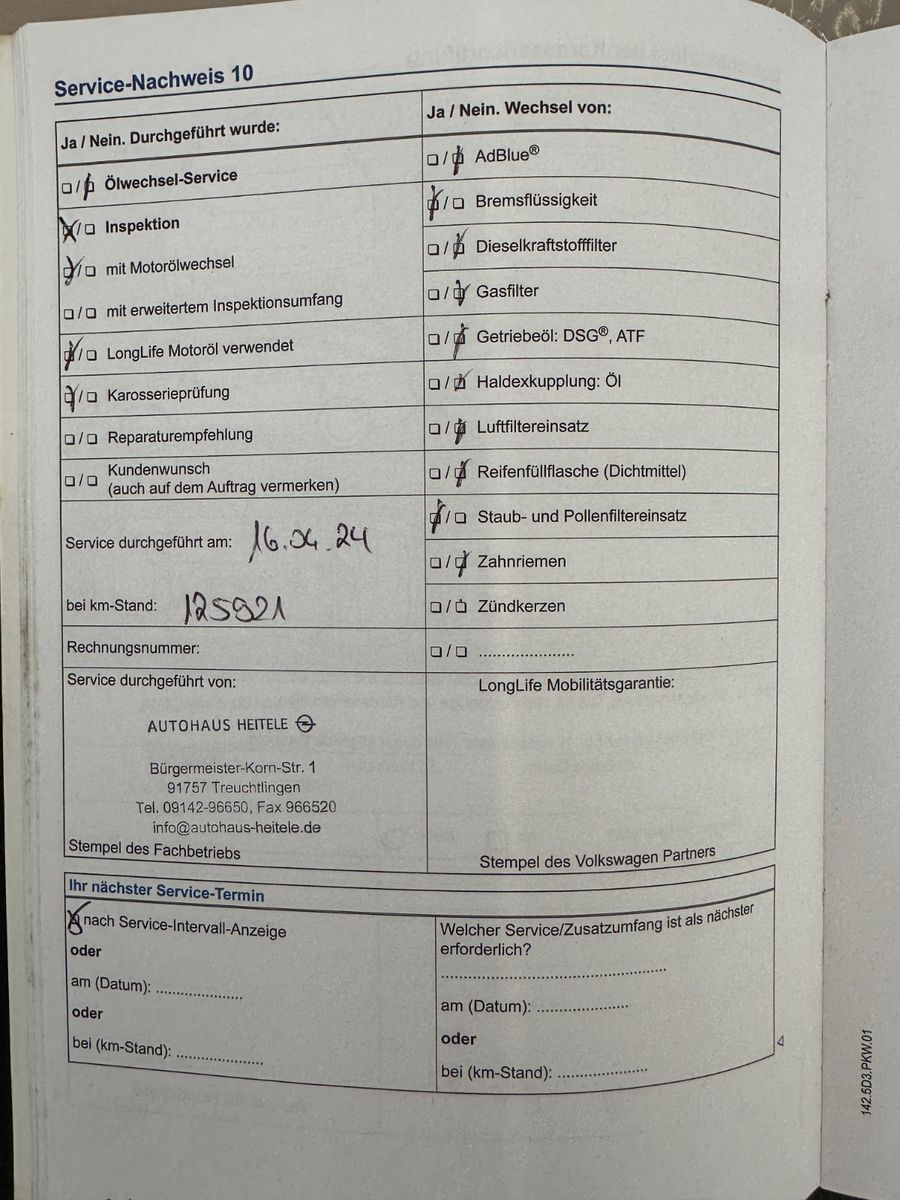 Service-Nachweis 10
Ja / Nein. Durchgeführt wurde:
☐ / ☒ Ölwechsel-Service
☒ / ☐ Inspektion
☒ / ☐ mit Motorölwechsel
☐ / ☐ mit erweitertem Inspektionsumfang
☒ / ☐ LongLife Motoröl verwendet
☒ / ☐ Karosserieprüfung
☐ / ☐ Reparaturempfehlung
☐ / ☐ Kundenwunsch
(auch auf dem Auftrag vermerken)
Service durchgeführt am: 16.04.24
bei km-Stand: 125921
Rechnungsnummer:
Service durchgeführt von:
AUTOHAUS HEITELE
Bürgermeister-Korn-Str. 1
91757 Treuchtlingen
Tel. 09142-96650, Fax 966520
info@autohaus-heitele.de
Stempel des Fachbetriebs
Ja / Nein. Wechsel von:
☐ / ☒ AdBlue®
☒ / ☐ Bremsflüssigkeit
☐ / ☒ Dieselkraftstofffilter
☐ / ☒ Gasfilter
☐ / ☒ Getriebeöl: DSG®, ATF
☐ / ☒ Haldexkupplung: Öl
☐ / ☒ Luftfiltereinsatz
☐ / ☒ Reifenfüllflasche (Dichtmittel)
☒ / ☐ Staub- und Pollenfiltereinsatz
☐ / ☒ Zahnriemen
☐ / ☐ Zündkerzen
☐ / ☐ .....................
LongLife Mobilitätsgarantie:
Stempel des Volkswagen Partners
Ihr nächster Service-Termin
☒ nach Service-Intervall-Anzeige
oder
am (Datum): ...................
oder
bei (km-Stand): ...................
Welcher Service/Zusatzumfang ist als nächster
erforderlich?
..................................................
am (Datum): ....................
oder
bei (km-Stand): ....................
142.5D3.PKW.01